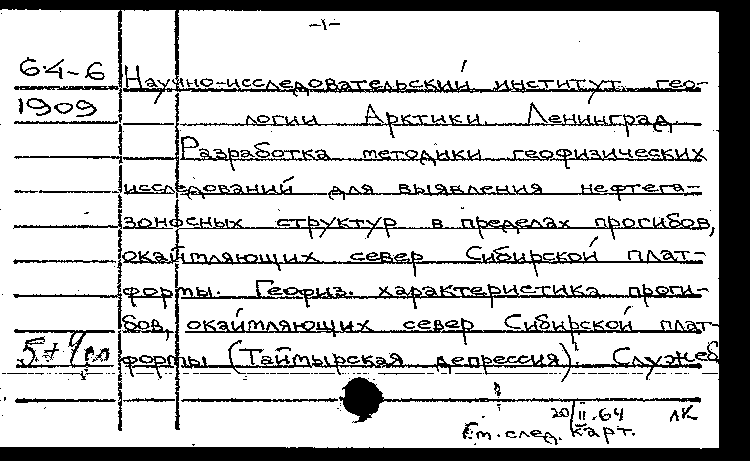 -1-
64-6 Научно-исследовательский институт гео-
1909 логии Арктики. Ленинград.
Разработка методики геофизических
исследований для выявления нефтега-
зоносных структур в пределах прогибов,
окаймляющих север Сибирской плат-
формы. Геофиз. характеристика проги-
бов, окаймляющих север Сибирской плат-
формы (Таймырская депрессия). Служеб
20/II-64 ЛК
См. след. карт.